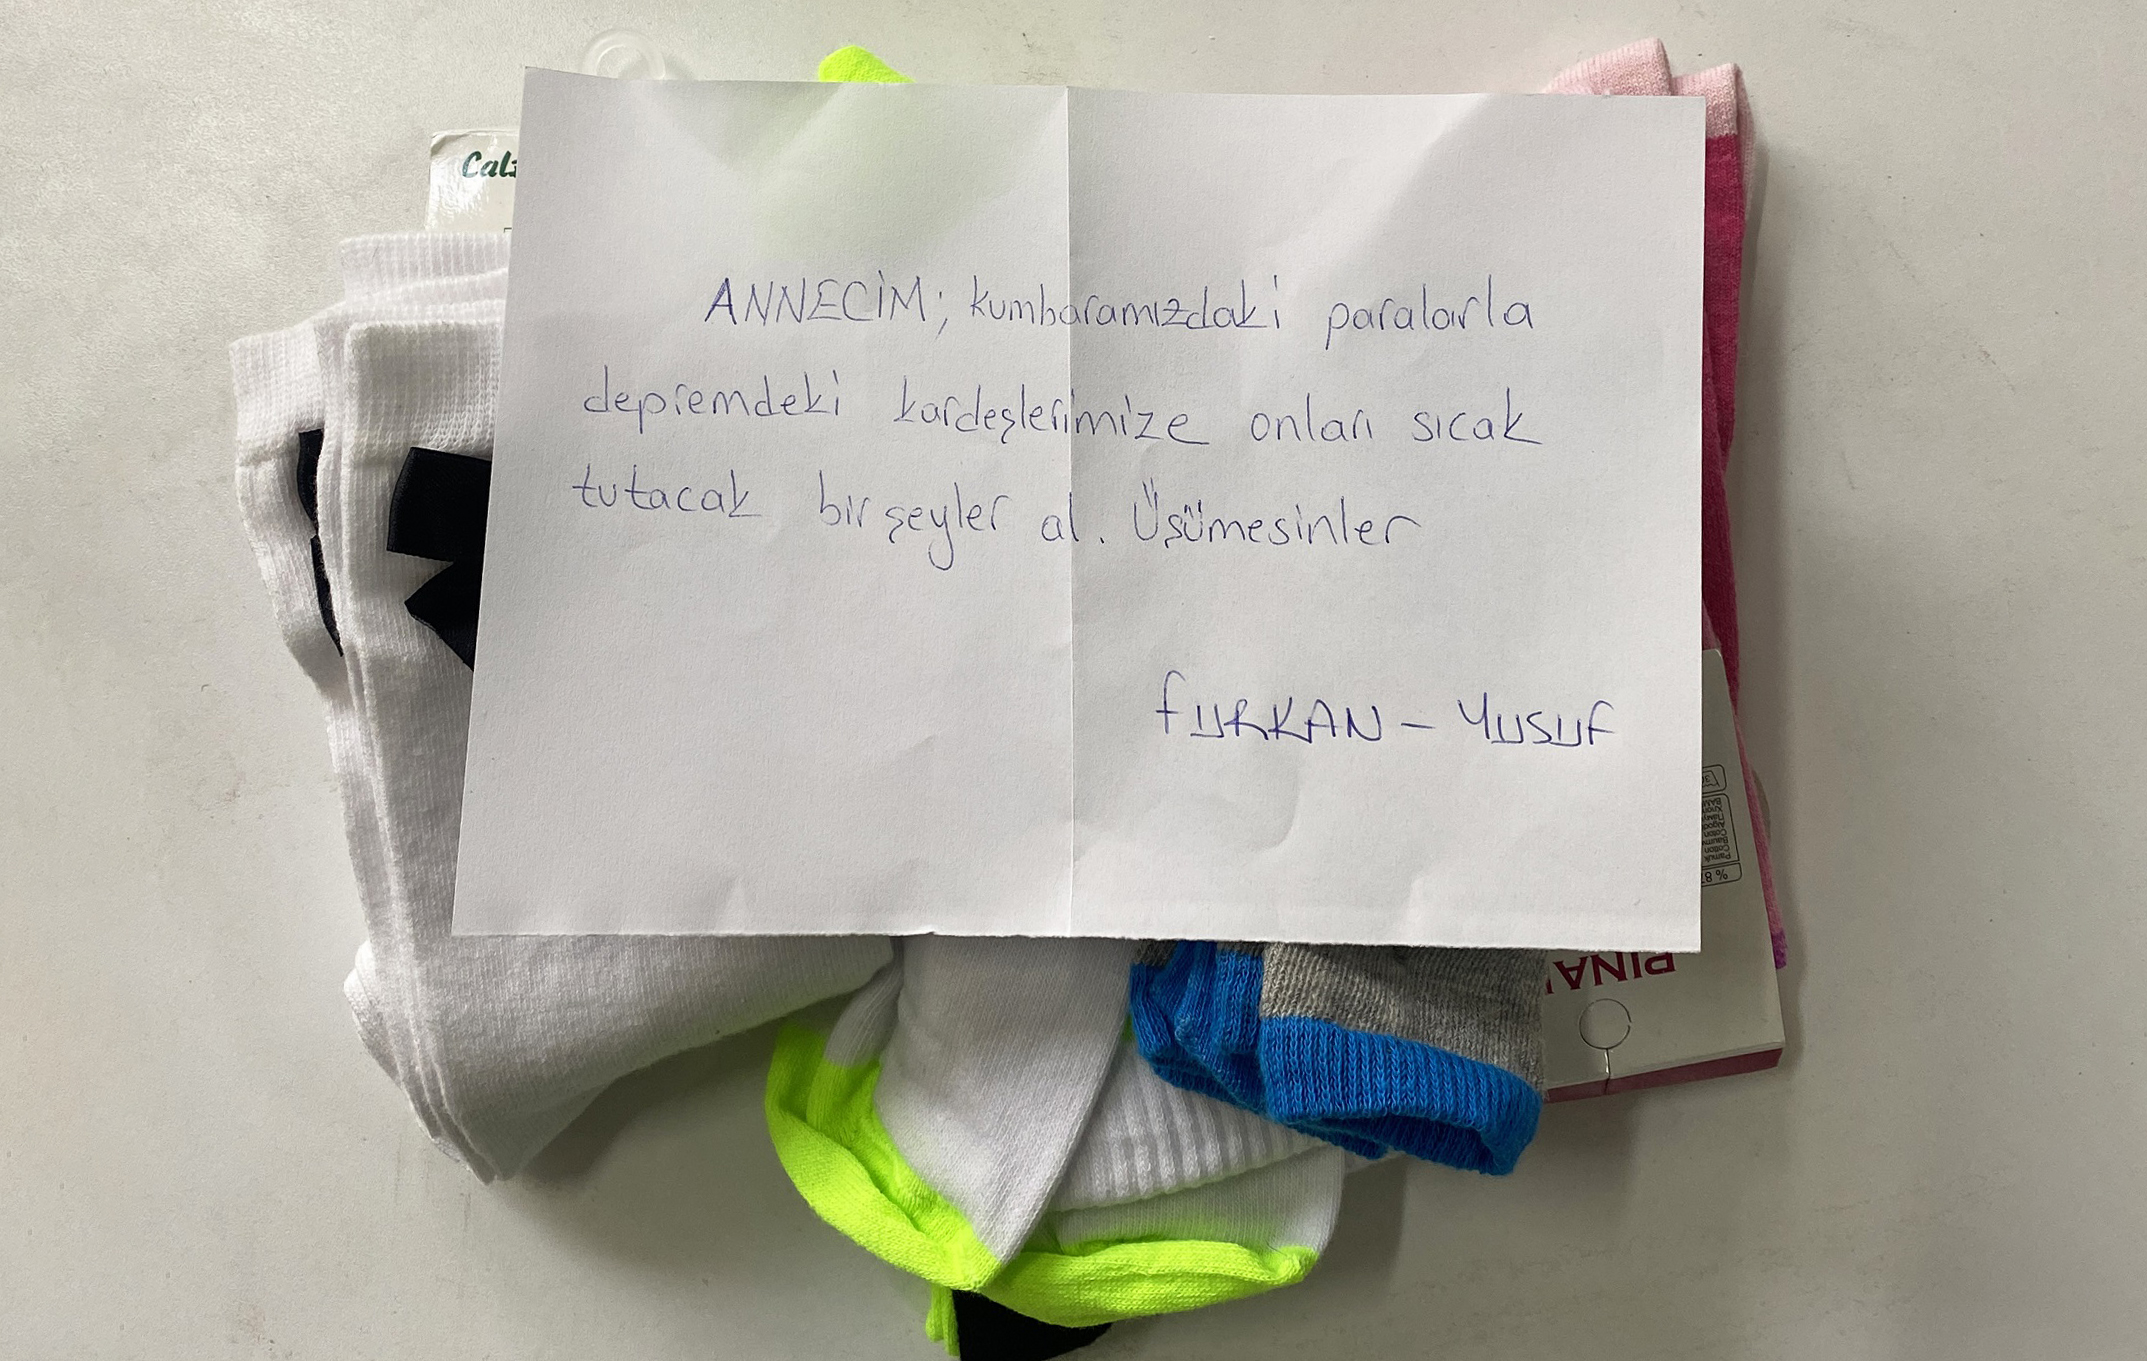 ANNECİM; kumbaramızdaki paralarla
depremdeki kardeşlerimize onları sıcak
tutacak bir şeyler al. Üşümesinler
FURKAN - YUSUF
% 8
Pamuk
Cotton